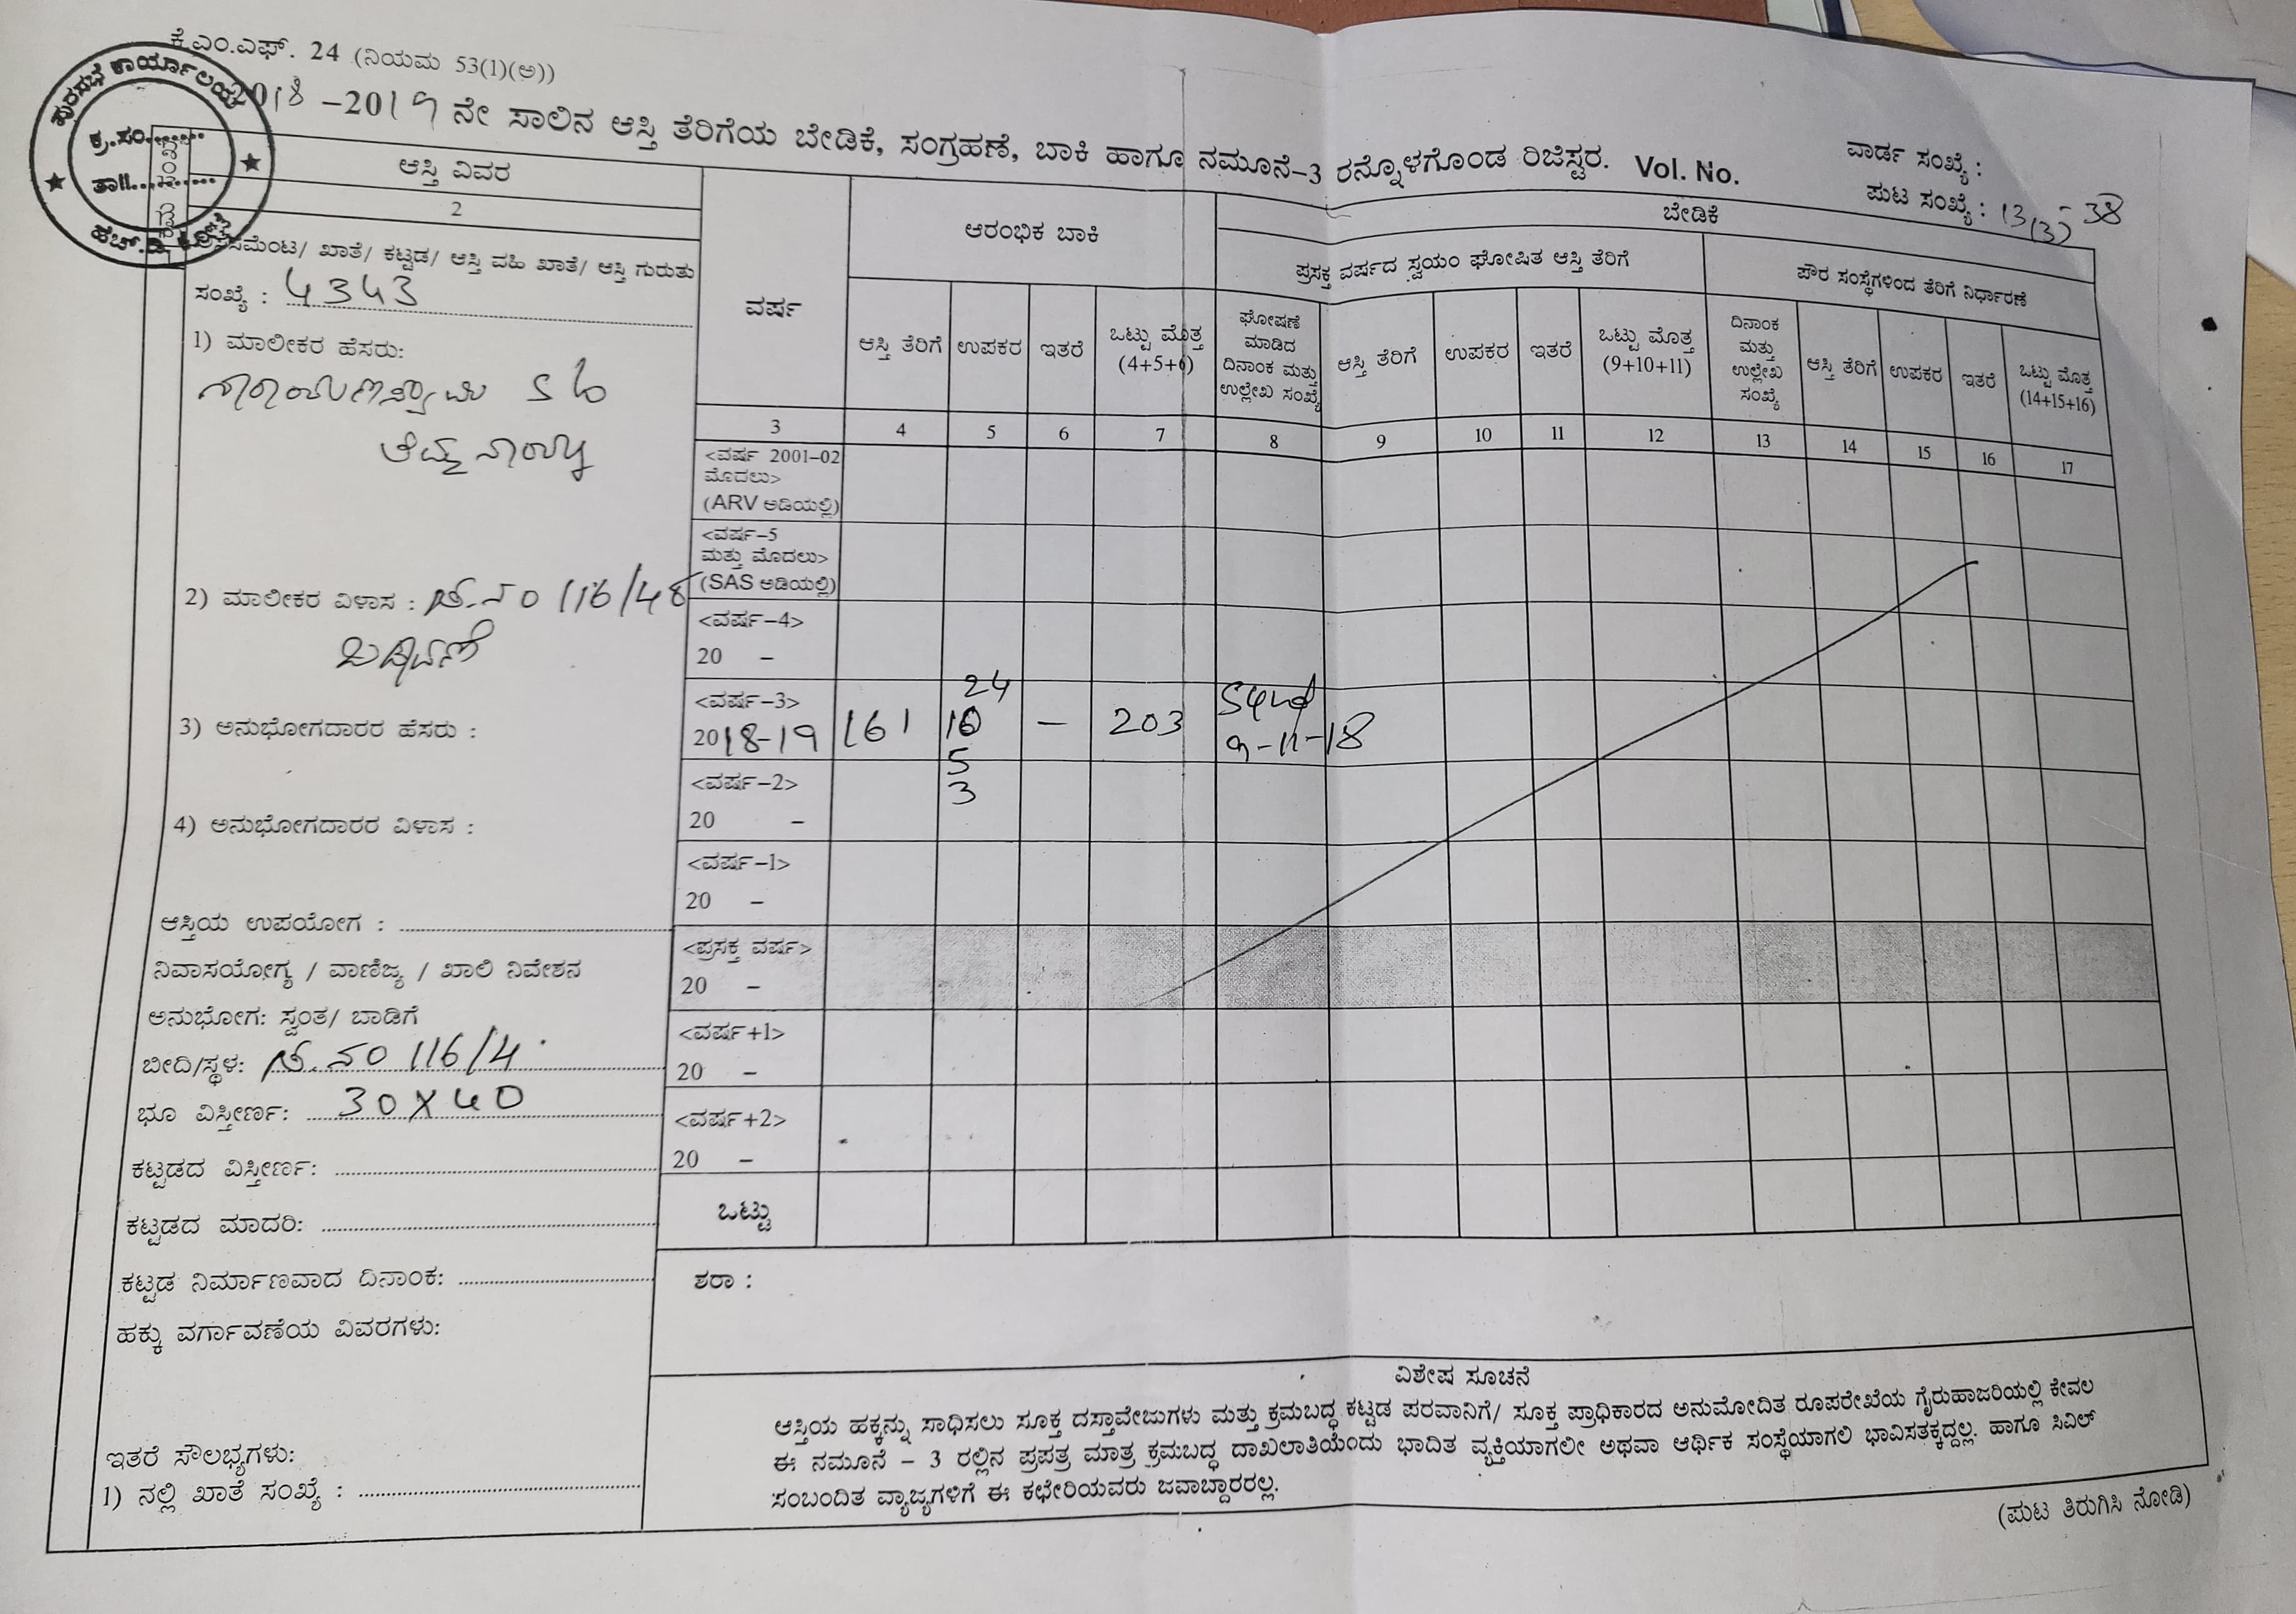 ಕೆ.ಎಂ.ಎಫ್. 24 (ನಿಯಮ 53(1)(ಅ))
2018 –2019 ನೇ ಸಾಲಿನ ಆಸ್ತಿ ತೆರಿಗೆಯ ಬೇಡಿಕೆ, ಸಂಗ್ರಹಣೆ, ಬಾಕಿ ಹಾಗೂ ನಮೂನೆ–3 ರನ್ನೊಳಗೊಂಡ ರಿಜಿಸ್ಟರ. Vol. No.
ವಾರ್ಡ ಸಂಖ್ಯೆ :
ಪುಟ ಸಂಖ್ಯೆ : 13(3) - 38
ಪುರಸಭೆ ಕಾರ್ಯಾಲಯ
ಕ್ರ.ಸಂ.......
ತಾ||...........
ಹೆಚ್.ಡಿ. ಕೋಟೆ
ಆಸ್ತಿ ವಿವರ
2
ಖಾತೆ/ ಕಟ್ಟಡ/ ಆಸ್ತಿ ವಹಿ ಖಾತೆ/ ಆಸ್ತಿ ಗುರುತು
ಸಂಖ್ಯೆ : 4343
1) ಮಾಲೀಕರ ಹೆಸರು:
ನಾರಾಯಣಸ್ವಾಮಿ S/o
ತಿಮ್ಮನಾಯ್ಕ
2) ಮಾಲೀಕರ ವಿಳಾಸ : ಸ.ನಂ 116/48
ಬಡಾವಣೆ
3) ಅನುಭೋಗದಾರರ ಹೆಸರು :
4) ಅನುಭೋಗದಾರರ ವಿಳಾಸ :
ಆಸ್ತಿಯ ಉಪಯೋಗ :
ನಿವಾಸಯೋಗ್ಯ / ವಾಣಿಜ್ಯ / ಖಾಲಿ ನಿವೇಶನ
ಅನುಭೋಗ: ಸ್ವಂತ/ ಬಾಡಿಗೆ
ಬೀದಿ/ಸ್ಥಳ: ಸ.ನಂ 116/4
ಭೂ ವಿಸ್ತೀರ್ಣ: 30X40
ಕಟ್ಟಡದ ವಿಸ್ತೀರ್ಣ:
ಕಟ್ಟಡದ ಮಾದರಿ:
ಕಟ್ಟಡ ನಿರ್ಮಾಣವಾದ ದಿನಾಂಕ:
ಹಕ್ಕು ವರ್ಗಾವಣೆಯ ವಿವರಗಳು:
ಇತರೆ ಸೌಲಭ್ಯಗಳು:
1) ನಲ್ಲಿ ಖಾತೆ ಸಂಖ್ಯೆ :
ವರ್ಷ
ಆರಂಭಿಕ ಬಾಕಿ
ಬೇಡಿಕೆ
ಪ್ರಸಕ್ತ ವರ್ಷದ ಸ್ವಯಂ ಘೋಷಿತ ಆಸ್ತಿ ತೆರಿಗೆ
ಪೌರ ಸಂಸ್ಥೆಗಳಿಂದ ತೆರಿಗೆ ನಿರ್ಧಾರಣೆ
ಆಸ್ತಿ ತೆರಿಗೆ
ಉಪಕರ
ಇತರೆ
ಒಟ್ಟು ಮೊತ್ತ
(4+5+6)
ಘೋಷಣೆ
ಮಾಡಿದ
ದಿನಾಂಕ ಮತ್ತು
ಉಲ್ಲೇಖ ಸಂಖ್ಯೆ
ಆಸ್ತಿ ತೆರಿಗೆ
ಉಪಕರ
ಇತರೆ
ಒಟ್ಟು ಮೊತ್ತ
(9+10+11)
ದಿನಾಂಕ
ಮತ್ತು
ಉಲ್ಲೇಖ
ಸಂಖ್ಯೆ
ಆಸ್ತಿ ತೆರಿಗೆ
ಉಪಕರ
ಇತರೆ
ಒಟ್ಟು ಮೊತ್ತ
(14+15+16)
3 4 5 6 7 8 9 10 11 12 13 14 15 16 17
<ವರ್ಷ 2001–02
ಮೊದಲು>
(ARV ಅಡಿಯಲ್ಲಿ)
<ವರ್ಷ–5
ಮತ್ತು ಮೊದಲು>
(SAS ಅಡಿಯಲ್ಲಿ)
<ವರ್ಷ–4>
20 –
<ವರ್ಷ–3>
2018-19 161 24 — 203
16
5
3
9-11-18
<ವರ್ಷ–2>
20 –
<ವರ್ಷ–1>
20 –
<ಪ್ರಸಕ್ತ ವರ್ಷ>
20 –
<ವರ್ಷ+1>
20 –
<ವರ್ಷ+2>
20 –
ಒಟ್ಟು
ಶರಾ :
ವಿಶೇಷ ಸೂಚನೆ
ಆಸ್ತಿಯ ಹಕ್ಕನ್ನು ಸಾಧಿಸಲು ಸೂಕ್ತ ದಸ್ತಾವೇಜುಗಳು ಮತ್ತು ಕ್ರಮಬದ್ಧ ಕಟ್ಟಡ ಪರವಾನಿಗೆ/ ಸೂಕ್ತ ಪ್ರಾಧಿಕಾರದ ಅನುಮೋದಿತ ರೂಪರೇಖೆಯ ಗೈರುಹಾಜರಿಯಲ್ಲಿ ಕೇವಲ
ಈ ನಮೂನೆ – 3 ರಲ್ಲಿನ ಪ್ರಪತ್ರ ಮಾತ್ರ ಕ್ರಮಬದ್ಧ ದಾಖಲಾತಿಯೆಂದು ಭಾದಿತ ವ್ಯಕ್ತಿಯಾಗಲೀ ಅಥವಾ ಆರ್ಥಿಕ ಸಂಸ್ಥೆಯಾಗಲಿ ಭಾವಿಸತಕ್ಕದ್ದಲ್ಲ. ಹಾಗೂ ಸಿವಿಲ್
ಸಂಬಂದಿತ ವ್ಯಾಜ್ಯಗಳಿಗೆ ಈ ಕಛೇರಿಯವರು ಜವಾಬ್ದಾರರಲ್ಲ.
(ಪುಟ ತಿರುಗಿಸಿ ನೋಡಿ)